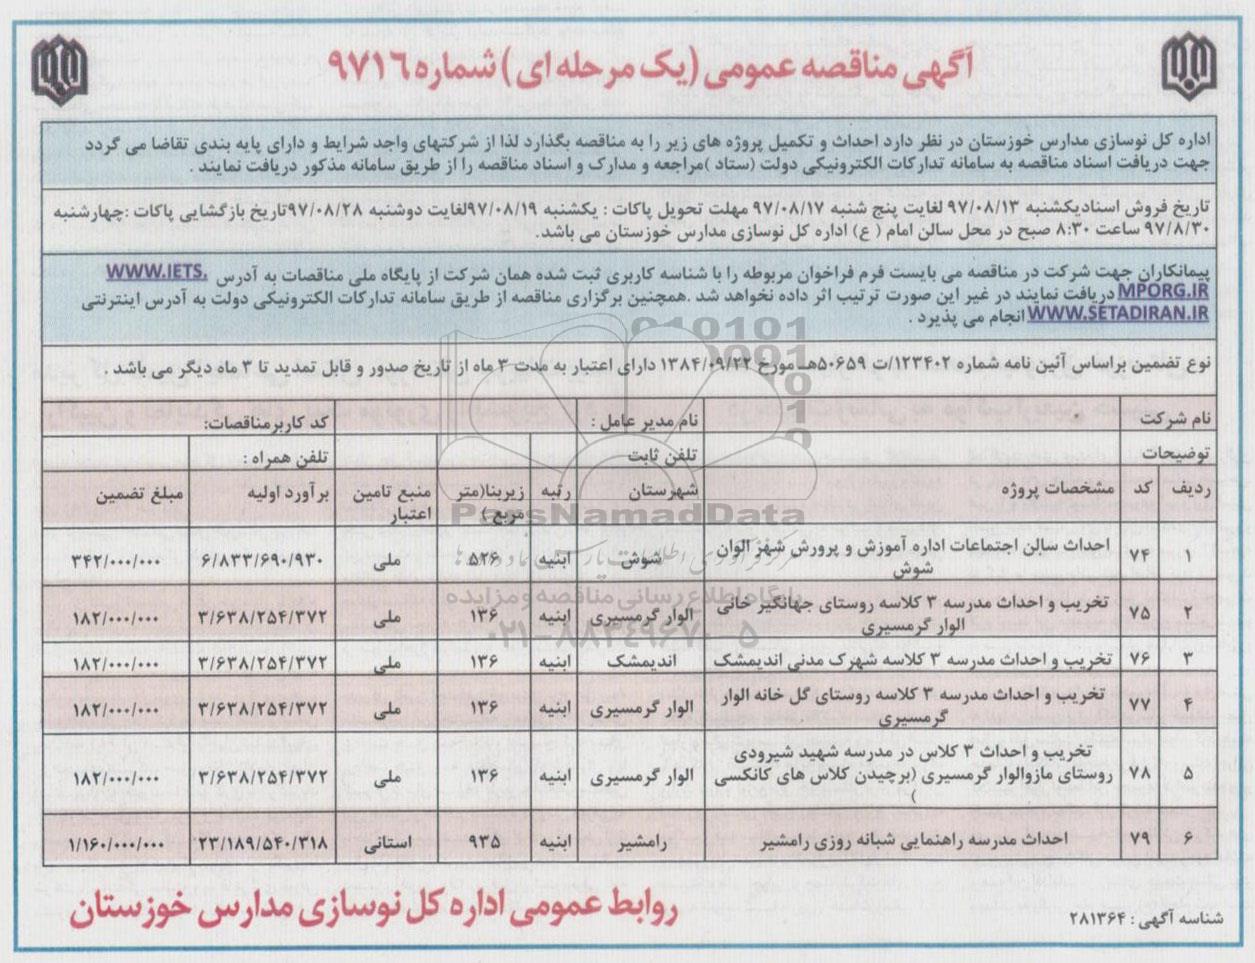 آگهی مناقصه عمومی (یک مرحله ای) شماره ۹۷۱۶
اداره کل نوسازی مدارس خوزستان در نظر دارد احداث و تکمیل پروژه های زیر را به مناقصه بگذارد لذا از شرکتهای واجد شرایط و دارای پایه بندی تقاضا می گردد
جهت دریافت اسناد مناقصه به سامانه تدارکات الکترونیکی دولت (ستاد )مراجعه و مدارک و اسناد مناقصه را از طریق سامانه مذکور دریافت نمایند .
تاریخ فروش اسنادیکشنبه ۹۷/۰۸/۱۳ لغایت پنج شنبه ۹۷/۰۸/۱۷ مهلت تحویل پاکات : یکشنبه ۹۷/۰۸/۱۹لغایت دوشنبه ۹۷/۰۸/۲۸تاریخ بازگشایی پاکات :چهارشنبه
۹۷/۸/۳۰ ساعت ۸:۳۰ صبح در محل سالن امام ( ع) اداره کل نوسازی مدارس خوزستان می باشد.
پیمانکاران جهت شرکت در مناقصه می بایست فرم فراخوان مربوطه را با شناسه کاربری ثبت شده همان شرکت از پایگاه ملی مناقصات به آدرس WWW.IETS.
MPORG.IR دریافت نمایند در غیر این صورت ترتیب اثر داده نخواهد شد .همچنین برگزاری مناقصه از طریق سامانه تدارکات الکترونیکی دولت به آدرس اینترنتی
WWW.SETADIRAN.IR انجام می پذیرد .
نوع تضمین براساس آئین نامه شماره ۱۲۳۴۰۲/ت ۵۰۶۵۹هـ مورخ ۱۳۸۴/۰۹/۲۲ دارای اعتبار به مدت ۳ ماه از تاریخ صدور و قابل تمدید تا ۳ ماه دیگر می باشد .
نام شرکت نام مدیر عامل : کد کاربرمناقصات:
توضیحات تلفن ثابت تلفن همراه :
ردیف کد مشخصات پروژه شهرستان رتبه زیربنا(متر مربع) منبع تامین اعتبار برآورد اولیه مبلغ تضمین
۱ ۷۴ احداث سالن اجتماعات اداره آموزش و پرورش شهر الوان شوش شوش ابنیه ۵۲۶ ملی ۶/۸۳۳/۶۹۰/۹۳۰ ۳۴۲/۰۰۰/۰۰۰
۲ ۷۵ تخریب و احداث مدرسه ۳ کلاسه روستای جهانگیر خانی الوار گرمسیری الوار گرمسیری ابنیه ۱۳۶ ملی ۳/۶۳۸/۲۵۴/۳۷۲ ۱۸۲/۰۰۰/۰۰۰
۳ ۷۶ تخریب و احداث مدرسه ۳ کلاسه شهرک مدنی اندیمشک اندیمشک ابنیه ۱۳۶ ملی ۳/۶۳۸/۲۵۴/۳۷۲ ۱۸۲/۰۰۰/۰۰۰
۴ ۷۷ تخریب و احداث مدرسه ۳ کلاسه روستای گل خانه الوار گرمسیری الوار گرمسیری ابنیه ۱۳۶ ملی ۳/۶۳۸/۲۵۴/۳۷۲ ۱۸۲/۰۰۰/۰۰۰
۵ ۷۸ تخریب و احداث ۳ کلاس در مدرسه شهید شیرودی روستای مازوالوار گرمسیری (برچیدن کلاس های کانکسی ) الوار گرمسیری ابنیه ۱۳۶ ملی ۳/۶۳۸/۲۵۴/۳۷۲ ۱۸۲/۰۰۰/۰۰۰
۶ ۷۹ احداث مدرسه راهنمایی شبانه روزی رامشیر رامشیر ابنیه ۹۳۵ استانی ۲۳/۱۸۹/۵۴۰/۳۱۸ ۱/۱۶۰/۰۰۰/۰۰۰
ParsNamadData
پایگاه اطلاع رسانی مناقصه و مزایده
۰۲۱-۸۸۳۴۹۶۷۰-۵
روابط عمومی اداره کل نوسازی مدارس خوزستان
شناسه آگهی : ۲۸۱۳۶۴